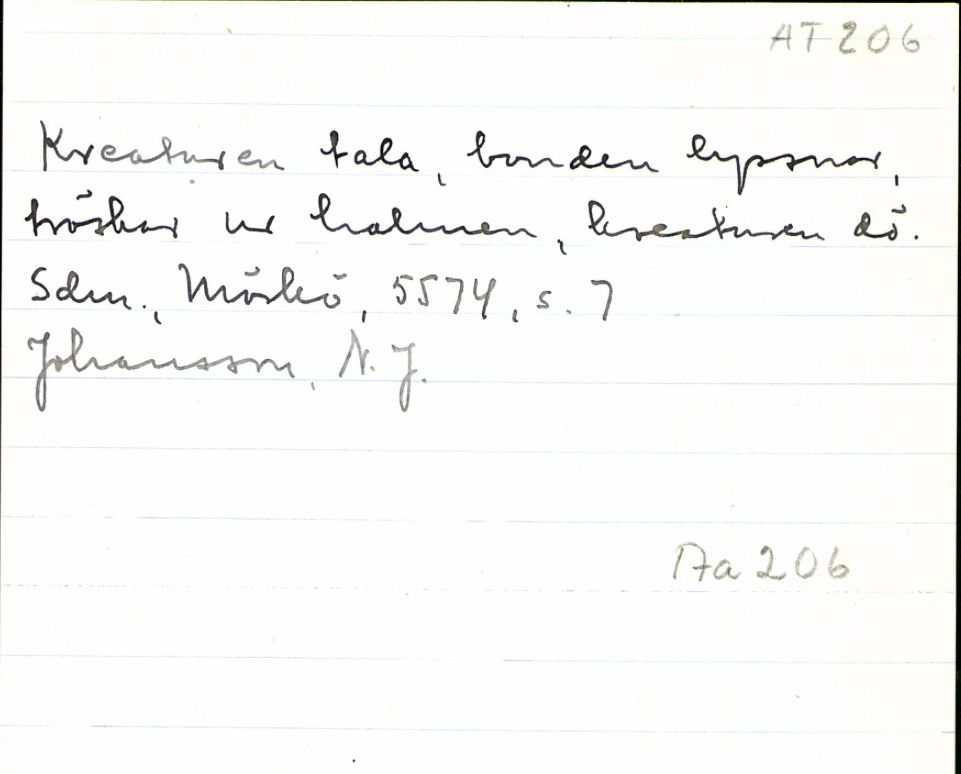 AT 206
Kreaturen tala, bonden lyssnar,
tröskar ur halmen, kreaturen dö.
Sdm., Mörkö, 5574, s. 7
Johansson, N. J.
17a 206